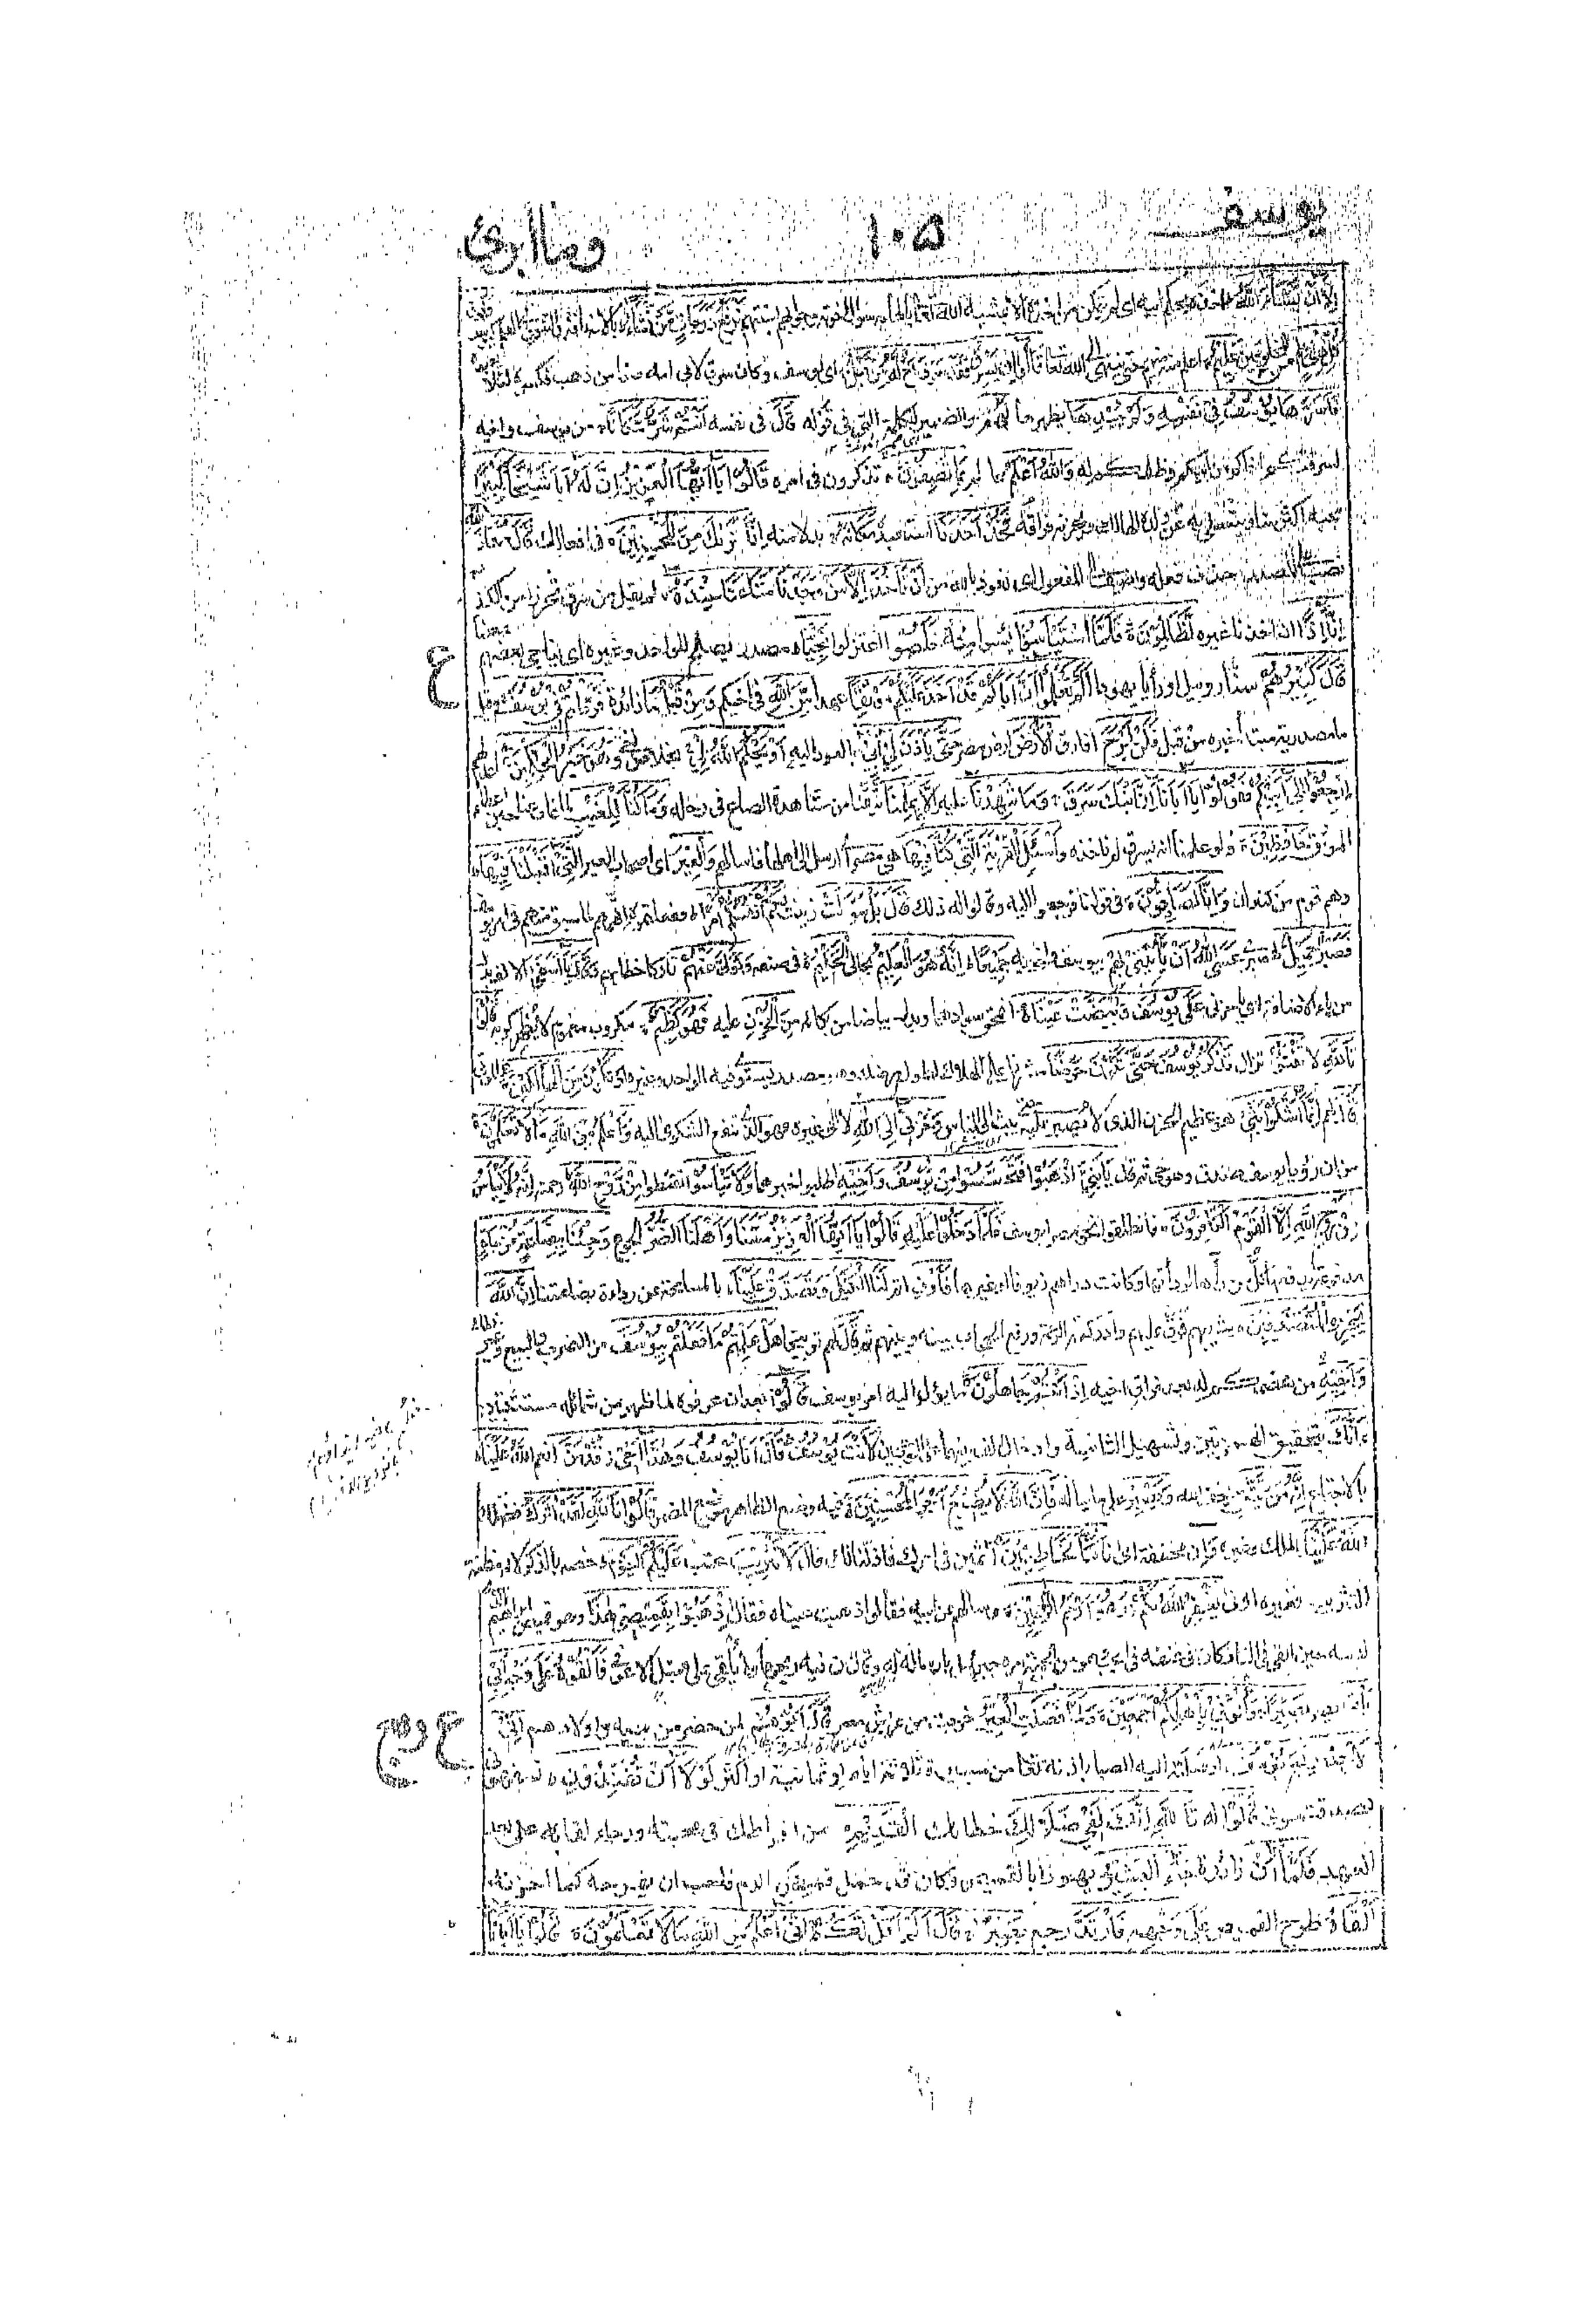 يوسف ١٠٥ وما أبرئ
إِلَّا أَنْ يَّشَاءَ اللهُ اخذه بحكم ابيه اى لم يتمكن من اخذه الا بمشية الله تعالى بالهامه سوال اخوته وجوابهم بسنتهم نَرْفَعُ دَرَجَاتٍ مَّنْ نَّشَاءُ بالاضافة والتنوين فى العلم كيوسف
كُلِّ ذِيْ عِلْمٍ من المخلوقين عَلِيْمٌ اعلم منه حتى ينتهى الى الله تعالى قَالُوْا اِنْ يَّسْرِقْ فَقَدْ سَرَقَ اَخٌ لَّهُ مِنْ قَبْلُ اى يوسف وكان سرق لابى امه صنما من ذهب فكسره لئلا
فَاَسَرَّهَا يُوْسُفُ فِيْ نَفْسِهٖ وَلَمْ يُبْدِهَا يظهرها لَهُمْ والضمير للكلمة التى فى قوله قَالَ فى نفسه اَنْتُمْ شَرٌّ مَّكَانًا من يوسف واخيه
لسرقتكم اخاكم من ابيكم وظلمكم له وَاللهُ اَعْلَمُ بِمَا تَصِفُوْنَ تذكرون فى امره قَالُوْا يَا اَيُّهَا الْعَزِيْزُ اِنَّ لَهُ اَبًا شَيْخًا كَبِيْرًا
يحبه اكثر منا ويتسلى به عن ولده الهالك ويحزنه فراقه فَخُذْ اَحَدَنَا استعبده مَكَانَهُ بدلا منه اِنَّا نَرٰكَ مِنَ الْمُحْسِنِيْنَ فى افعالك قَالَ مَعَاذَ
نصب على المصدر حذف فعله واضيف الى المفعول اى نعوذ بالله من اَنْ نَّاْخُذَ اِلَّا مَنْ وَّجَدْنَا مَتَاعَنَا عِنْدَهُ لم يقل من سرق تحرزا من الكذب
اِنَّا اِذًا ان اخذنا غيره لَّظَالِمُوْنَ فَلَمَّا اسْتَيْاَسُوْا يئسوا مِنْهُ خَلَصُوْا اعتزلوا نَجِيًّا مصدر يصلح للواحد وغيره اى يناجى بعضهم
قَالَ كَبِيْرُهُمْ سنا روبيل او رأيا يهودا اَلَمْ تَعْلَمُوْا اَنَّ اَبَاكُمْ قَدْ اَخَذَ عَلَيْكُمْ مَّوْثِقًا عهدا مِّنَ اللهِ فى اخيكم وَمِنْ قَبْلُ مَا زائدة فَرَّطْتُّمْ فِيْ يُوْسُفَ وقيل
ما مصدرية مبتدأ خبره من قبل فَلَنْ اَبْرَحَ افارق الْاَرْضَ ارض مصر حَتّٰى يَاْذَنَ لِيْ اَبِيْ بالعود اليه اَوْ يَحْكُمَ اللهُ لِيْ بخلاص اخى وَهُوَ خَيْرُ الْحَاكِمِيْنَ اعدلهم
اِرْجِعُوْا اِلٰى اَبِيْكُمْ فَقُوْلُوْا يَا اَبَانَا اِنَّ ابْنَكَ سَرَقَ وَمَا شَهِدْنَا عليه اِلَّا بِمَا عَلِمْنَا تيقنا من مشاهدة الصاع فى رحله وَمَا كُنَّا لِلْغَيْبِ لما غاب عنا حين
الموثق حَافِظِيْنَ ولو علمنا انه يسرق لم ناخذه وَاسْئَلِ الْقَرْيَةَ الَّتِيْ كُنَّا فِيْهَا هى مصر اى ارسل الى اهلها فاسألهم وَالْعِيْرَ اى اصحاب العير الَّتِيْ اَقْبَلْنَا فِيْهَا
وهم قوم من كنعان وَاِنَّا لَصَادِقُوْنَ فى قولنا فرجعوا اليه وقالوا له ذلك قَالَ بَلْ سَوَّلَتْ زينت لَكُمْ اَنْفُسُكُمْ اَمْرًا ففعلتموه اتهمهم لما سبق منهم فى امر يوسف
فَصَبْرٌ جَمِيْلٌ صبرى عَسَى اللهُ اَنْ يَّاْتِيَنِيْ بِهِمْ بيوسف واخويه جَمِيْعًا اِنَّهُ هُوَ الْعَلِيْمُ بحالى الْحَكِيْمُ فى صنعه وَتَوَلّٰى عَنْهُمْ تاركا خطابهم وَقَالَ يَا اَسَفٰى الالف بدل
من ياء الاضافة اى يا حزنى عَلٰى يُوْسُفَ وَابْيَضَّتْ عَيْنَاهُ انمحق سوادهما وبدل بياضا من بكائه مِنَ الْحُزْنِ عليه فَهُوَ كَظِيْمٌ مكروب مغموم لا يظهر كربه قَالُوْا
تَاللهِ لا تَفْتَؤُ تزال تَذْكُرُ يُوْسُفَ حَتّٰى تَكُوْنَ حَرَضًا مشرفا على الهلاك لطول مرضك وهو مصدر يستوى فيه الواحد وغيره اَوْ تَكُوْنَ مِنَ الْهَالِكِيْنَ الموتى
قَالَ لهم اِنَّمَا اَشْكُوْ بَثِّيْ هو عظيم الحزن الذى لا يصبر عليه حتى يبث الى الناس وَحُزْنِيْ اِلَى اللهِ لا الى غيره فهو الذى تنفع الشكوى اليه وَاَعْلَمُ مِنَ اللهِ مَا لَا تَعْلَمُوْنَ
من ان رؤيا يوسف صدق وهو حى ثم قال يَا بَنِيَّ اذْهَبُوْا فَتَحَسَّسُوْا مِنْ يُّوْسُفَ وَاَخِيْهِ اطلبوا خبرهما وَلَا تَيْاَسُوْا تقنطوا مِنْ رَّوْحِ اللهِ رحمته اِنَّهُ لَا يَيْاَسُ
مِنْ رَّوْحِ اللهِ اِلَّا الْقَوْمُ الْكَافِرُوْنَ فانطلقوا نحو مصر ليوسف فَلَمَّا دَخَلُوْا عَلَيْهِ قَالُوْا يَا اَيُّهَا الْعَزِيْزُ مَسَّنَا وَاَهْلَنَا الضُّرُّ الجوع وَجِئْنَا بِبِضَاعَةٍ مُّزْجَاةٍ
مدفوعة يدفعها كل من رآها لرداءتها وكانت دراهم زيوفا او غيرها فَاَوْفِ اتم لَنَا الْكَيْلَ وَتَصَدَّقْ عَلَيْنَا بالمسامحة عن رداءة بضاعتنا اِنَّ اللهَ
يَجْزِي الْمُتَصَدِّقِيْنَ يثيبهم فرق عليهم وادركته الرحمة ورفع الحجاب بينه وبينهم ثم قَالَ لهم توبيخا هَلْ عَلِمْتُمْ مَّا فَعَلْتُمْ بِيُوْسُفَ من الضرب والبيع وغير
وَاَخِيْهِ من هضمكم له بعد فراق اخيه اِذْ اَنْتُمْ جَاهِلُوْنَ ما يؤل اليه امر يوسف قَالُوْا بعد ان عرفوه لما ظهر من شمائله مستثبتين
ءَاِنَّكَ بتحقيق الهمزتين وتسهيل الثانية وادخال الف بينهما على الوجهين لَاَنْتَ يُوْسُفُ قَالَ اَنَا يُوْسُفُ وَهٰذَا اَخِيْ قَدْ مَنَّ انعم اللهُ عَلَيْنَا
بالاجتماع اِنَّهُ مَنْ يَّتَّقِ يخف الله وَيَصْبِرْ على ما يناله فَاِنَّ اللهَ لَا يُضِيْعُ اَجْرَ الْمُحْسِنِيْنَ فيه وضع الظاهر موضع المضمر قَالُوْا تَاللهِ لَقَدْ اٰثَرَكَ فضلك
اللهُ عَلَيْنَا بالملك وغيره وَاِنْ مخففة اى انا كُنَّا لَخَاطِئِيْنَ آثمين فى امرك فاذلنا لك قَالَ لَا تَثْرِيْبَ عتب عَلَيْكُمُ الْيَوْمَ خصه بالذكر لانه مظنة
التثريب فغيره اولى يَغْفِرُ اللهُ لَكُمْ وَهُوَ اَرْحَمُ الرَّاحِمِيْنَ وسالهم عن ابيه فقالوا ذهبت عيناه فقال اِذْهَبُوْا بِقَمِيْصِيْ هٰذَا وهو قميص ابراهيم
لبسه حين القى فى النار كان فى عنقه فى الجب وهو من الجنة امره جبرئيل بارساله له وقال ان فيه ريحها ولا يلقى على مبتلى الا عوفى فَاَلْقُوْهُ عَلٰى وَجْهِ اَبِيْ
يَاْتِ يصر بَصِيْرًا وَاْتُوْنِيْ بِاَهْلِكُمْ اَجْمَعِيْنَ وَلَمَّا فَصَلَتِ الْعِيْرُ خرجت من عريش مصر قَالَ اَبُوْهُمْ لمن حضر من بنيه واولادهم اِنِّيْ
لَاَجِدُ رِيْحَ يُوْسُفَ اوصلته اليه الصبا باذنه تعالى من مسيرة ثلاثة ايام او ثمانية او اكثر لَوْلَا اَنْ تُفَنِّدُوْنِ تسفهونى
لصدقتمونى قَالُوْا له تَاللهِ اِنَّكَ لَفِيْ ضَلَالِكَ خطائك الْقَدِيْمِ من افراطك فى محبته ورجاء لقائه على بعد
العهد فَلَمَّا اَنْ زائدة جَاءَ الْبَشِيْرُ يهوذا بالقميص وكان قد حمل قميص الدم فاحب ان يفرحه كما احزنه
اَلْقَاهُ طرح القميص عَلٰى وَجْهِهٖ فَارْتَدَّ رجع بَصِيْرًا قَالَ اَلَمْ اَقُلْ لَّكُمْ اِنِّيْ اَعْلَمُ مِنَ اللهِ مَا لَا تَعْلَمُوْنَ قَالُوْا يَا اَبَانَا